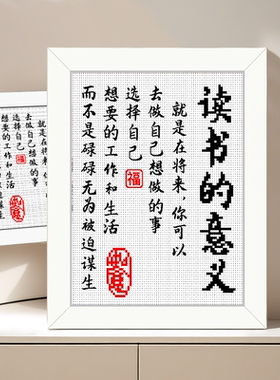 读书的意义
就是在将来，你可以
去做自己想做的事
选择自己
福
想要的工作和生活
而不是碌碌无为被迫谋生
就是在将来，你可以
去做自己想做的事
选择自己
福
想要的工作和生活
而不是碌碌无为被迫谋生